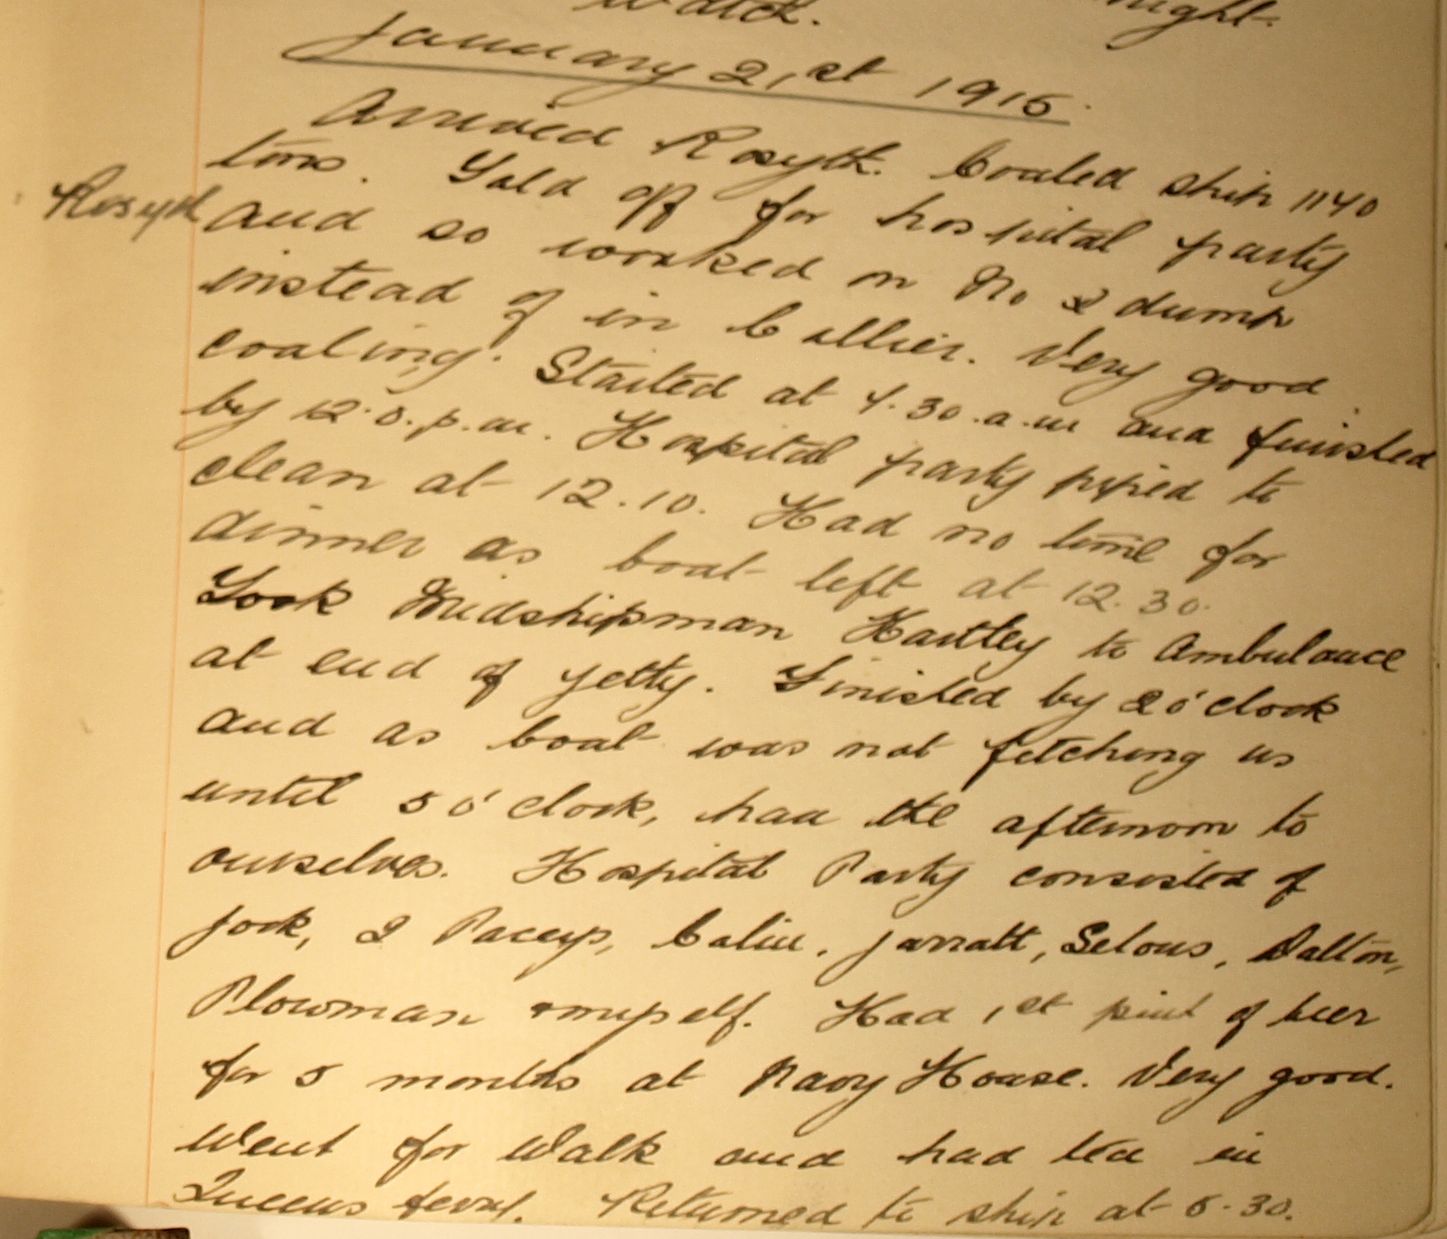 watch. night.
January 21st 1915.
Arrived Rosyth. Coaled ship 1140
tons. Told off for hospital party
Rosyth
and so worked on No 2 dump
instead of in Collier. Very good
coaling. Started at 4.30.a.m and finished
by 12.0.p.m. Hospital party piped to
clean at 12.10. Had no time for
dinner as boat left at 12.30.
Took Midshipman Hartley to Ambulance
at end of jetty. Finished by 2 o'clock
and as boat was not fetching us
until 5 o'clock, had the afternoon to
ourselves. Hospital Party consisted of
Jock, 2 Paceys, Jarratt, Selous, Dalton,
Plowman & myself. Had 1st pint of beer
for 5 months at Navy House. Very good.
Went for walk and had tea in
Queens Returned to ship at 5.30.